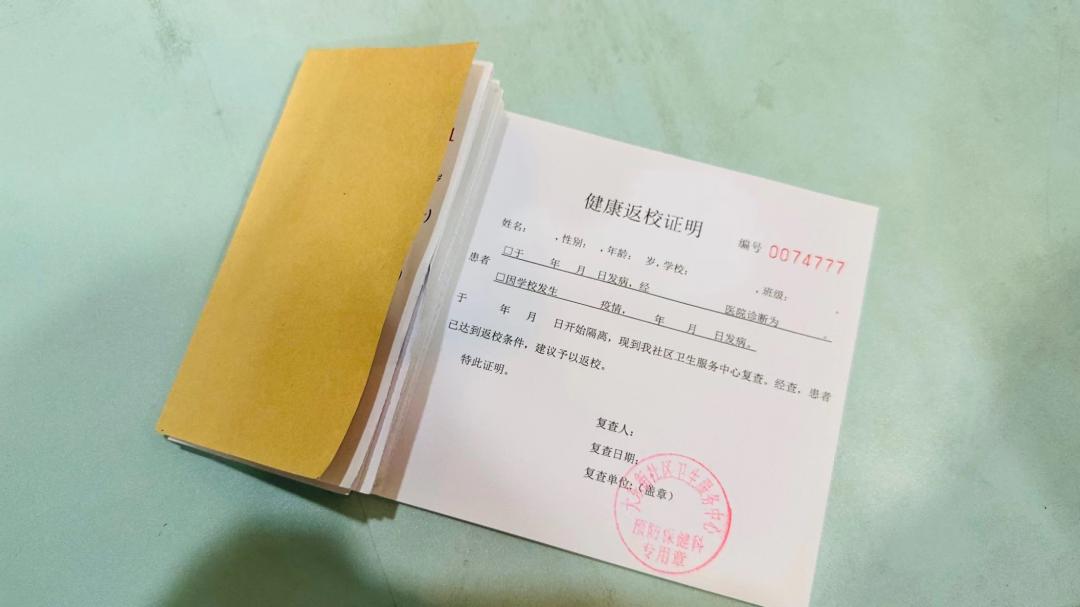 健康返校证明
编号 0074777
姓名： ，性别： ，年龄： 岁，学校： ，班级： ，
患者 □于 年 月 日发病，经 医院诊断为 。
□因学校发生 疫情， 年 月 日发病。
于 年 月 日开始隔离，现到我社区卫生服务中心复查。经查，患者
已达到返校条件，建议予以返校。
特此证明。
复查人：
复查日期：
复查单位：（盖章）
街社区卫生服务中心
预防保健科
专用章